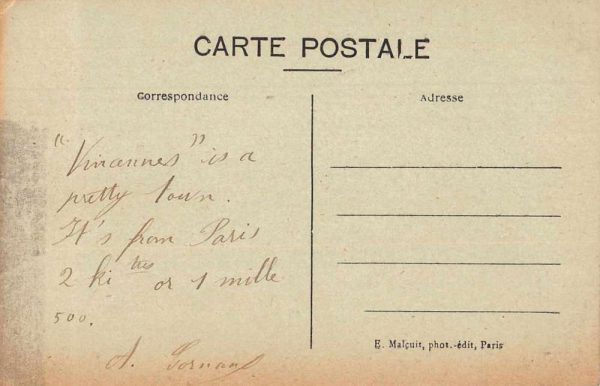 CARTE POSTALE
Correspondance
"Vincennes" is a
pretty town.
It's from Paris
2 ki tres or 1 mille
500.
A.
Adresse
E. Malcuit, phot.-édit, Paris